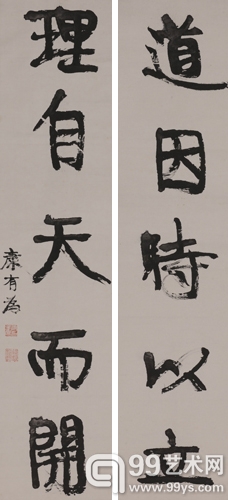 道因時以立
理自天而開
康有為
99艺术网
www.99ys.com